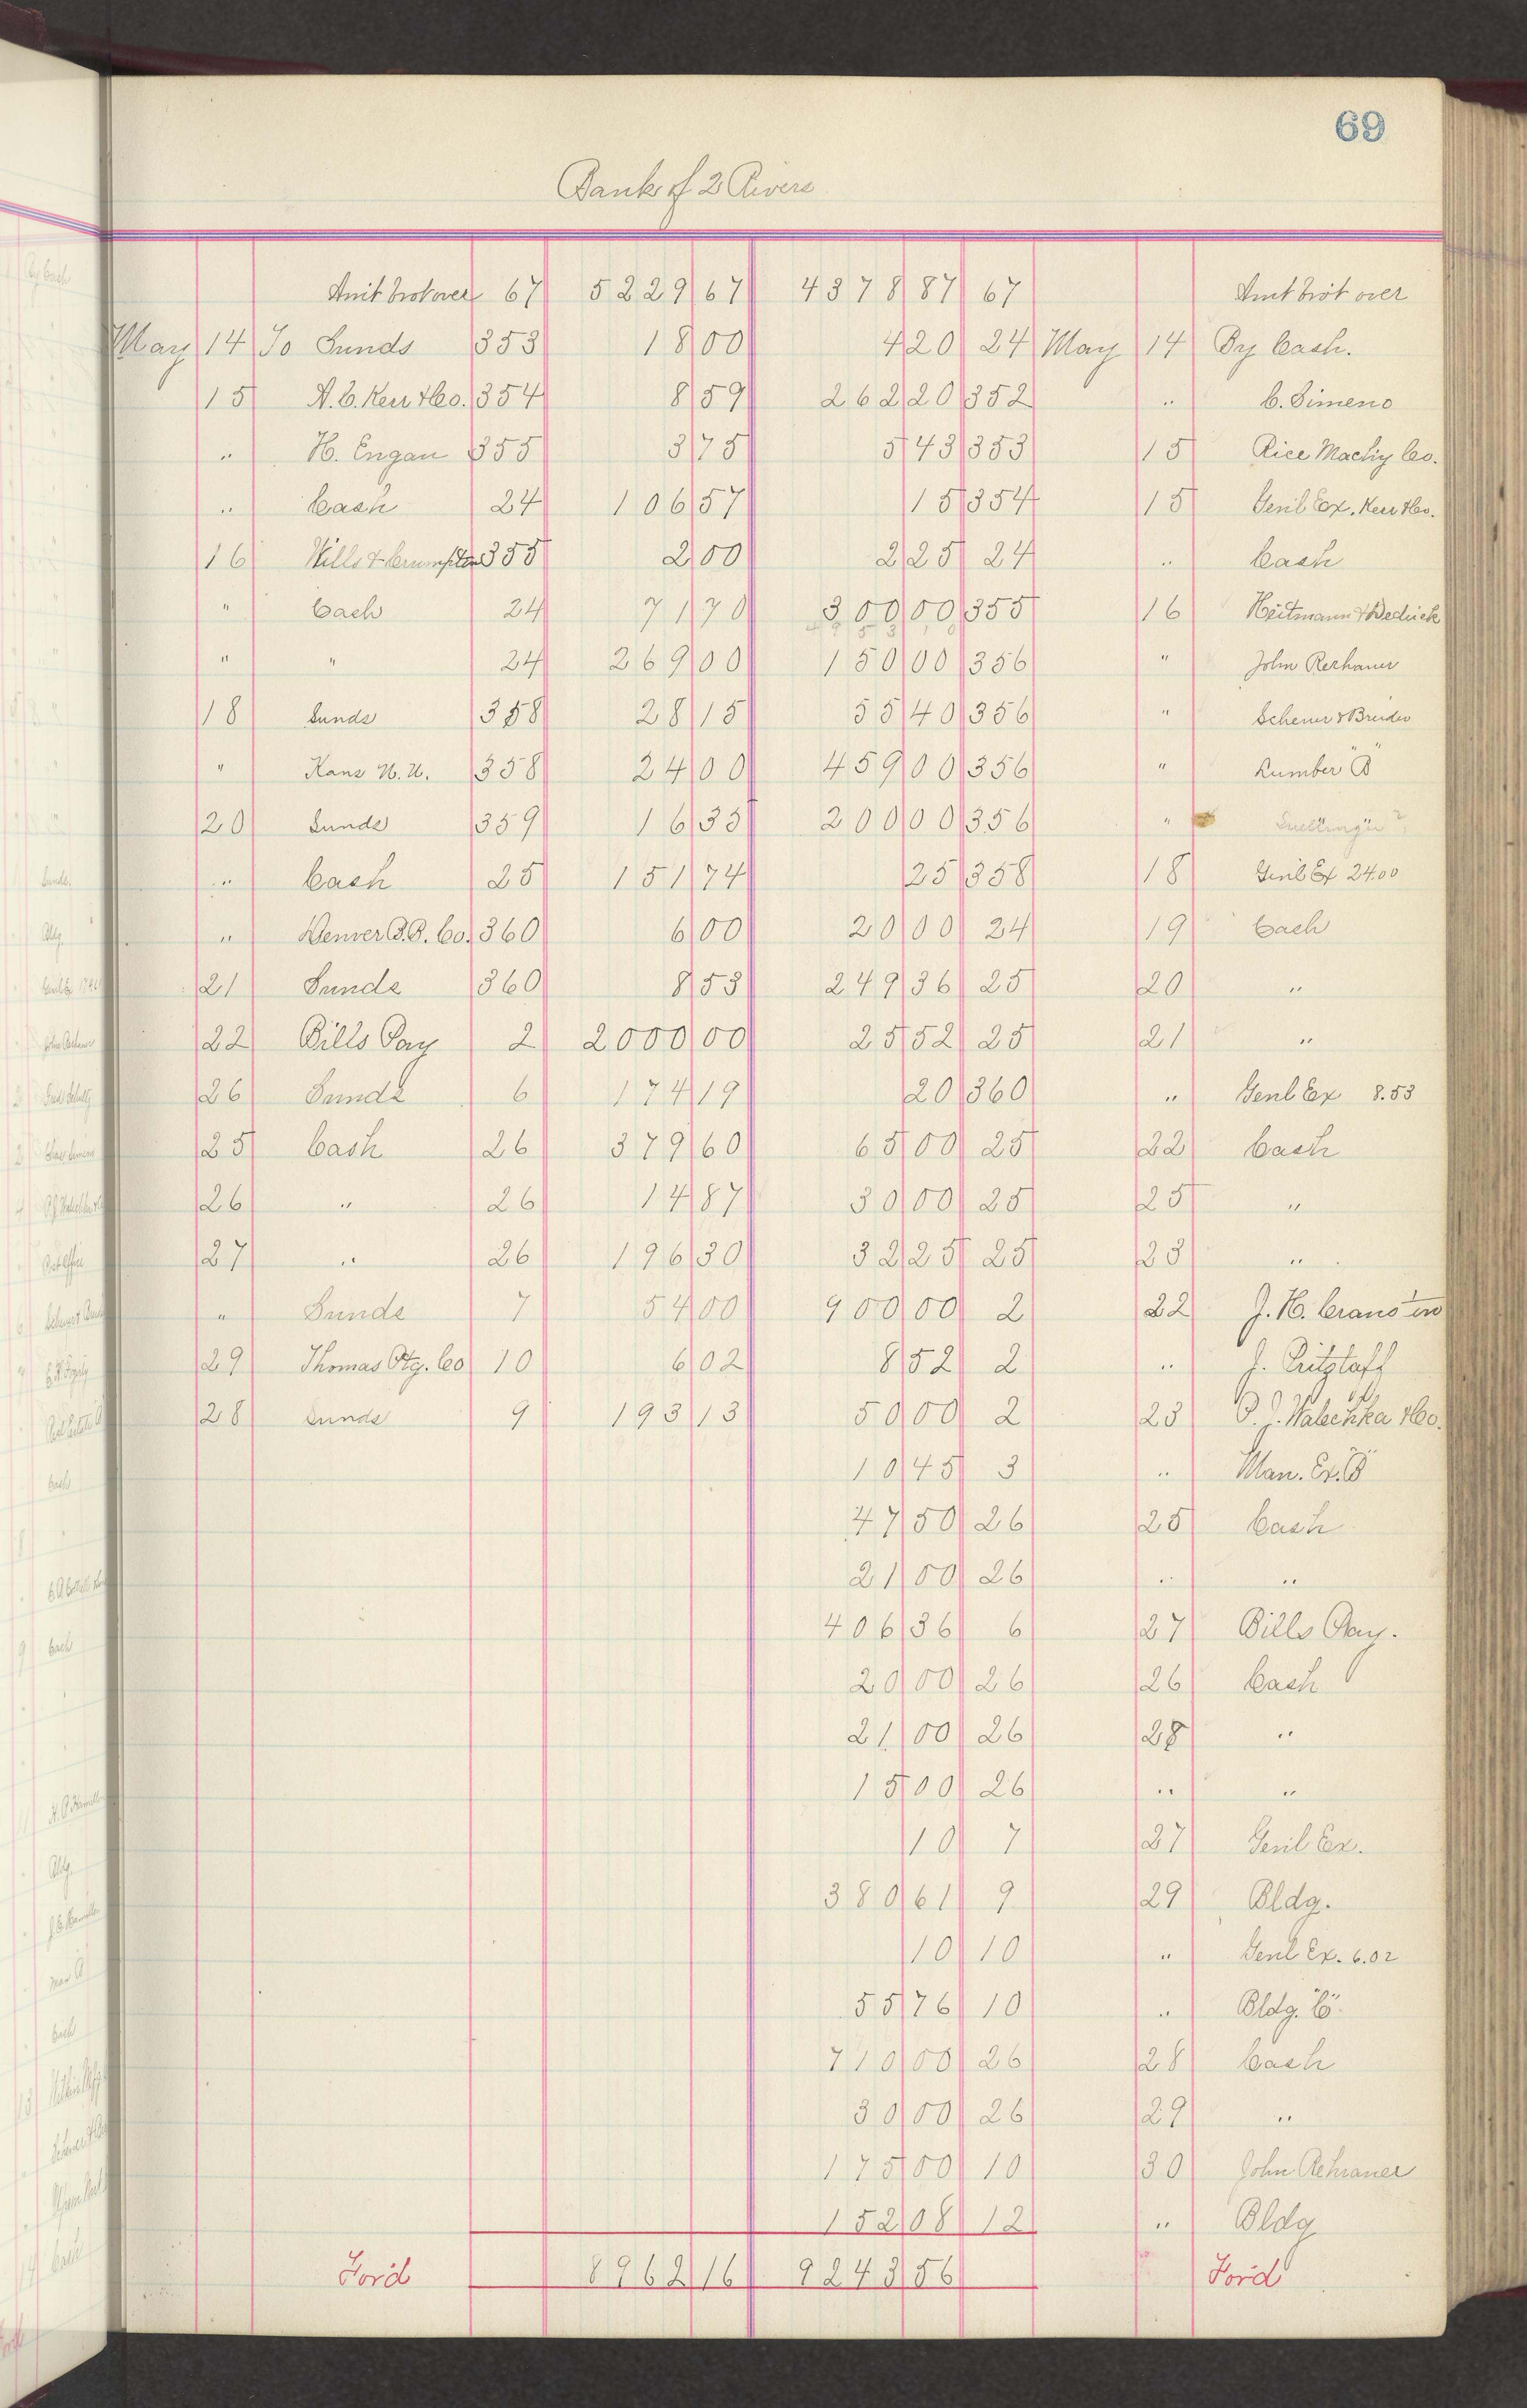 69
Bank of 2 Rivers
Amt brot over 67 5229 67 4378 87 67 Amt brot over
May 14 To Sunds 353 18 00 4 20 24 May 14 By Cash.
15 A. C. Kerr & Co. 354 8 59 262 20 352 " C. Simeno
" H. Engan 355 3 75 5 43 353 15 Rice Machy Co.
" Cash 24 106 57 15 354 15 Genl Ex. Kerr & Co.
16 Wills & Crumpton 355 2 00 2 25 24 " Cash
" Cash 24 71 70 300 00 355 16 Heitmann &
" " 24 269 00 150 00 356 " John
18 Sunds 358 28 15 55 40 356 "
" Kans N. N. 358 24 00 459 00 356 " Lumber "B"
20 Sunds 359 16 35 200 00 356 "
" Cash 25 151 74 25 358 18 Genl Ex 24.00
" Denver B.B. Co. 360 6 00 20 00 24 19 Cash
21 Sunds 360 8 53 249 36 25 20 "
22 Bills Pay 2 2000 00 25 52 25 21 "
26 Sunds 6 174 19 20 360 " Genl Ex 8.53
25 Cash 26 379 60 65 00 25 22 Cash
26 " 26 14 87 30 00 25 25 "
27 " 26 196 30 32 25 25 23 "
" Sunds 7 54 00 900 00 2 22 J. H. Cranston
29 Thomas Ptg. Co 10 6 02 8 52 2 " J. Pritzlaff
28 Sunds 9 193 13 50 00 2 23 P. J. Walechka & Co.
10 45 3 " Man. Ex. "B"
47 50 26 25 Cash
21 00 26 " "
406 36 6 27 Bills Pay.
20 00 26 26 Cash
21 00 26 28 "
15 00 26 " "
10 7 27 Genl Ex.
380 61 9 29 Bldg.
10 10 " Genl Ex. 6.02
55 76 10 " Bldg. "C"
710 00 26 28 Cash
30 00 26 29 "
175 00 10 30 John
152 08 12 " Bldg
For'd 8962 16 9243 56 For'd